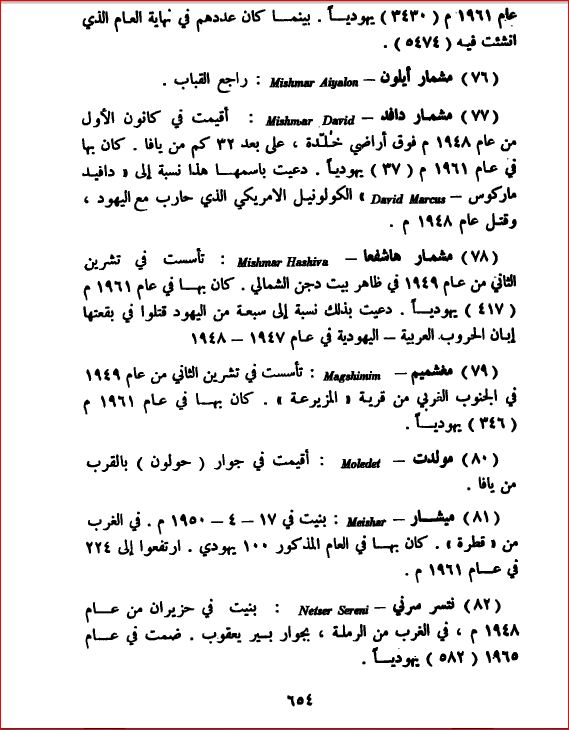 عام ١٩٦١ م ( ٣٤٣٠ ) يهودياً . بينما كان عددهم في نهاية العام الذي
انشئت فيه ( ٥٤٧٤ ) .
( ٧٦ ) مشمار أيلون – Mishmar Aiyalon : راجع القباب .
( ٧٧ ) مشمار دافد – Mishmar David : أقيمت في كانون الأول
من عام ١٩٤٨ م فوق أراضي خُلْدة ، على بعد ٣٢ كم من يافا . كان بها
في عام ١٩٦١ م ( ٣٧ ) يهودياً . دعيت باسمها هذا نسبة إلى « دافيد
ماركوس – David Marcus » الكولونيل الامريكي الذي حارب مع اليهود ،
وقتل عام ١٩٤٨ م .
( ٧٨ ) مشمار هاشفعا – Mishmar Hashiva : تأسست في تشرين
الثاني من عام ١٩٤٩ في ظاهر بيت دجن الشمالي . كان بها في عام ١٩٦١ م
( ٤١٧ ) يهودياً . دعيت بذلك نسبة إلى سبعة من اليهود قتلوا في بقعتها
إبان الحروب العربية – اليهودية في عام ١٩٤٧ – ١٩٤٨
( ٧٩ ) مغشميم – Magshimim : تأسست في تشرين الثاني من عام ١٩٤٩
في الجنوب الغربي من قرية « المزيرعة » . كان بها في عام ١٩٦١ م
( ٣٤٦ ) يهودياً .
( ٨٠ ) مولدت – Moledet : أقيمت في جوار ( حولون ) بالقرب
من يافا .
( ٨١ ) ميشار – Meishar : بنيت في ١٧ – ٤ – ١٩٥٠ م . في الغرب
من « قطرة » . كان بها في العام المذكور ١٠٠ يهودي . ارتفعوا إلى ٢٢٤
في عام ١٩٦١ م .
( ٨٢ ) نتسر سرني – Netser Sereni : بنيت في حزيران من عام
١٩٤٨ م ، في الغرب من الرملة ، بجوار بير يعقوب . ضمت في عام
١٩٦٥ ( ٥٨٢ ) يهودياً .
٦٥٤